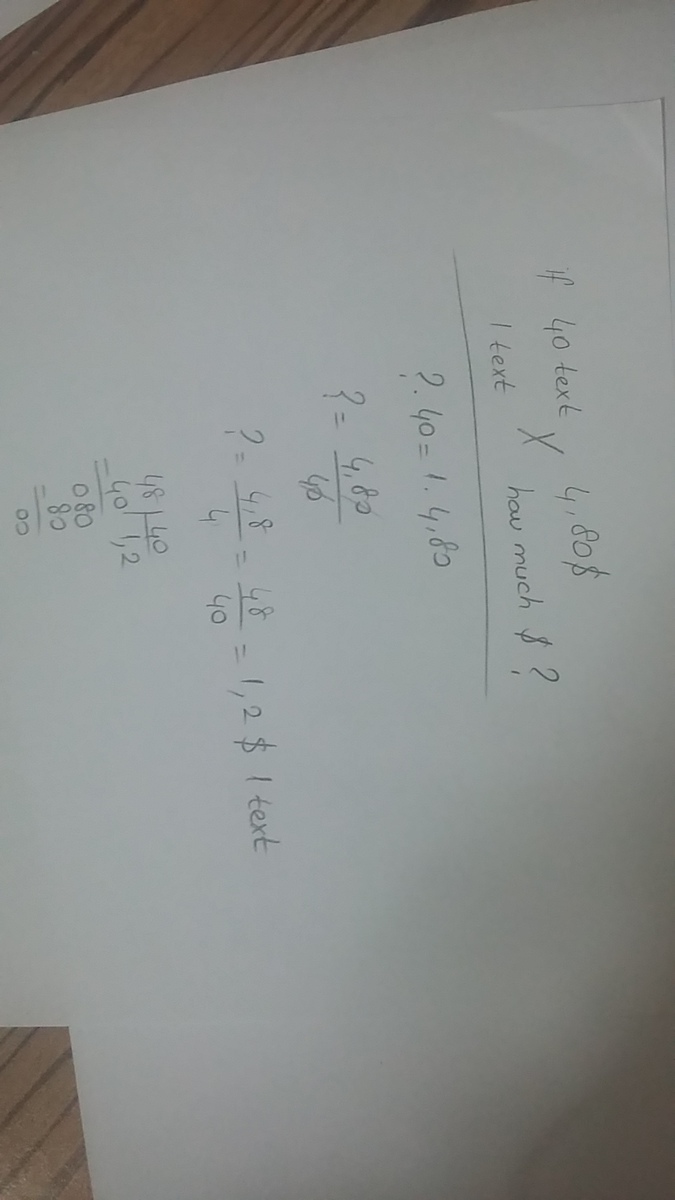 if 40 text X 4,80$
1 text how much $?
?. 40 = 1. 4,80
? = 4,80 / 40
? = 4,8 / 4 = 48 / 40 = 1,2 $ 1 text
48 | 40
- 40 1,2
080
- 80
00